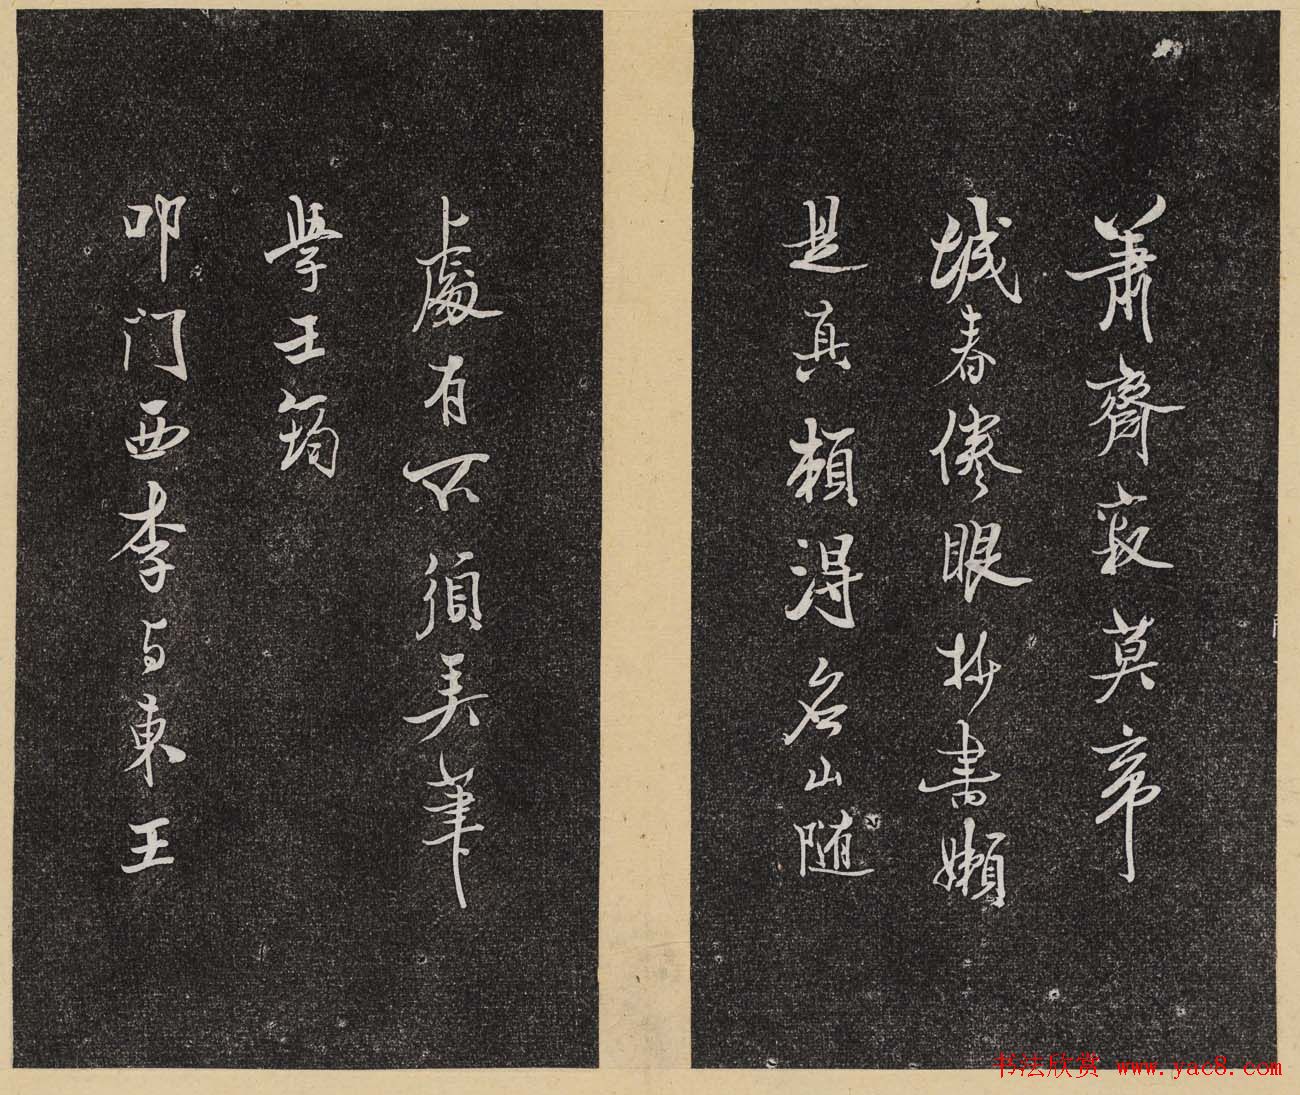 蕭齋寂莫帝
城春倦眼抄書嬾
是真賴得名山随
處有不須美筆
學王筠
叩门西李与東王
书法欣赏 www.yac8.com